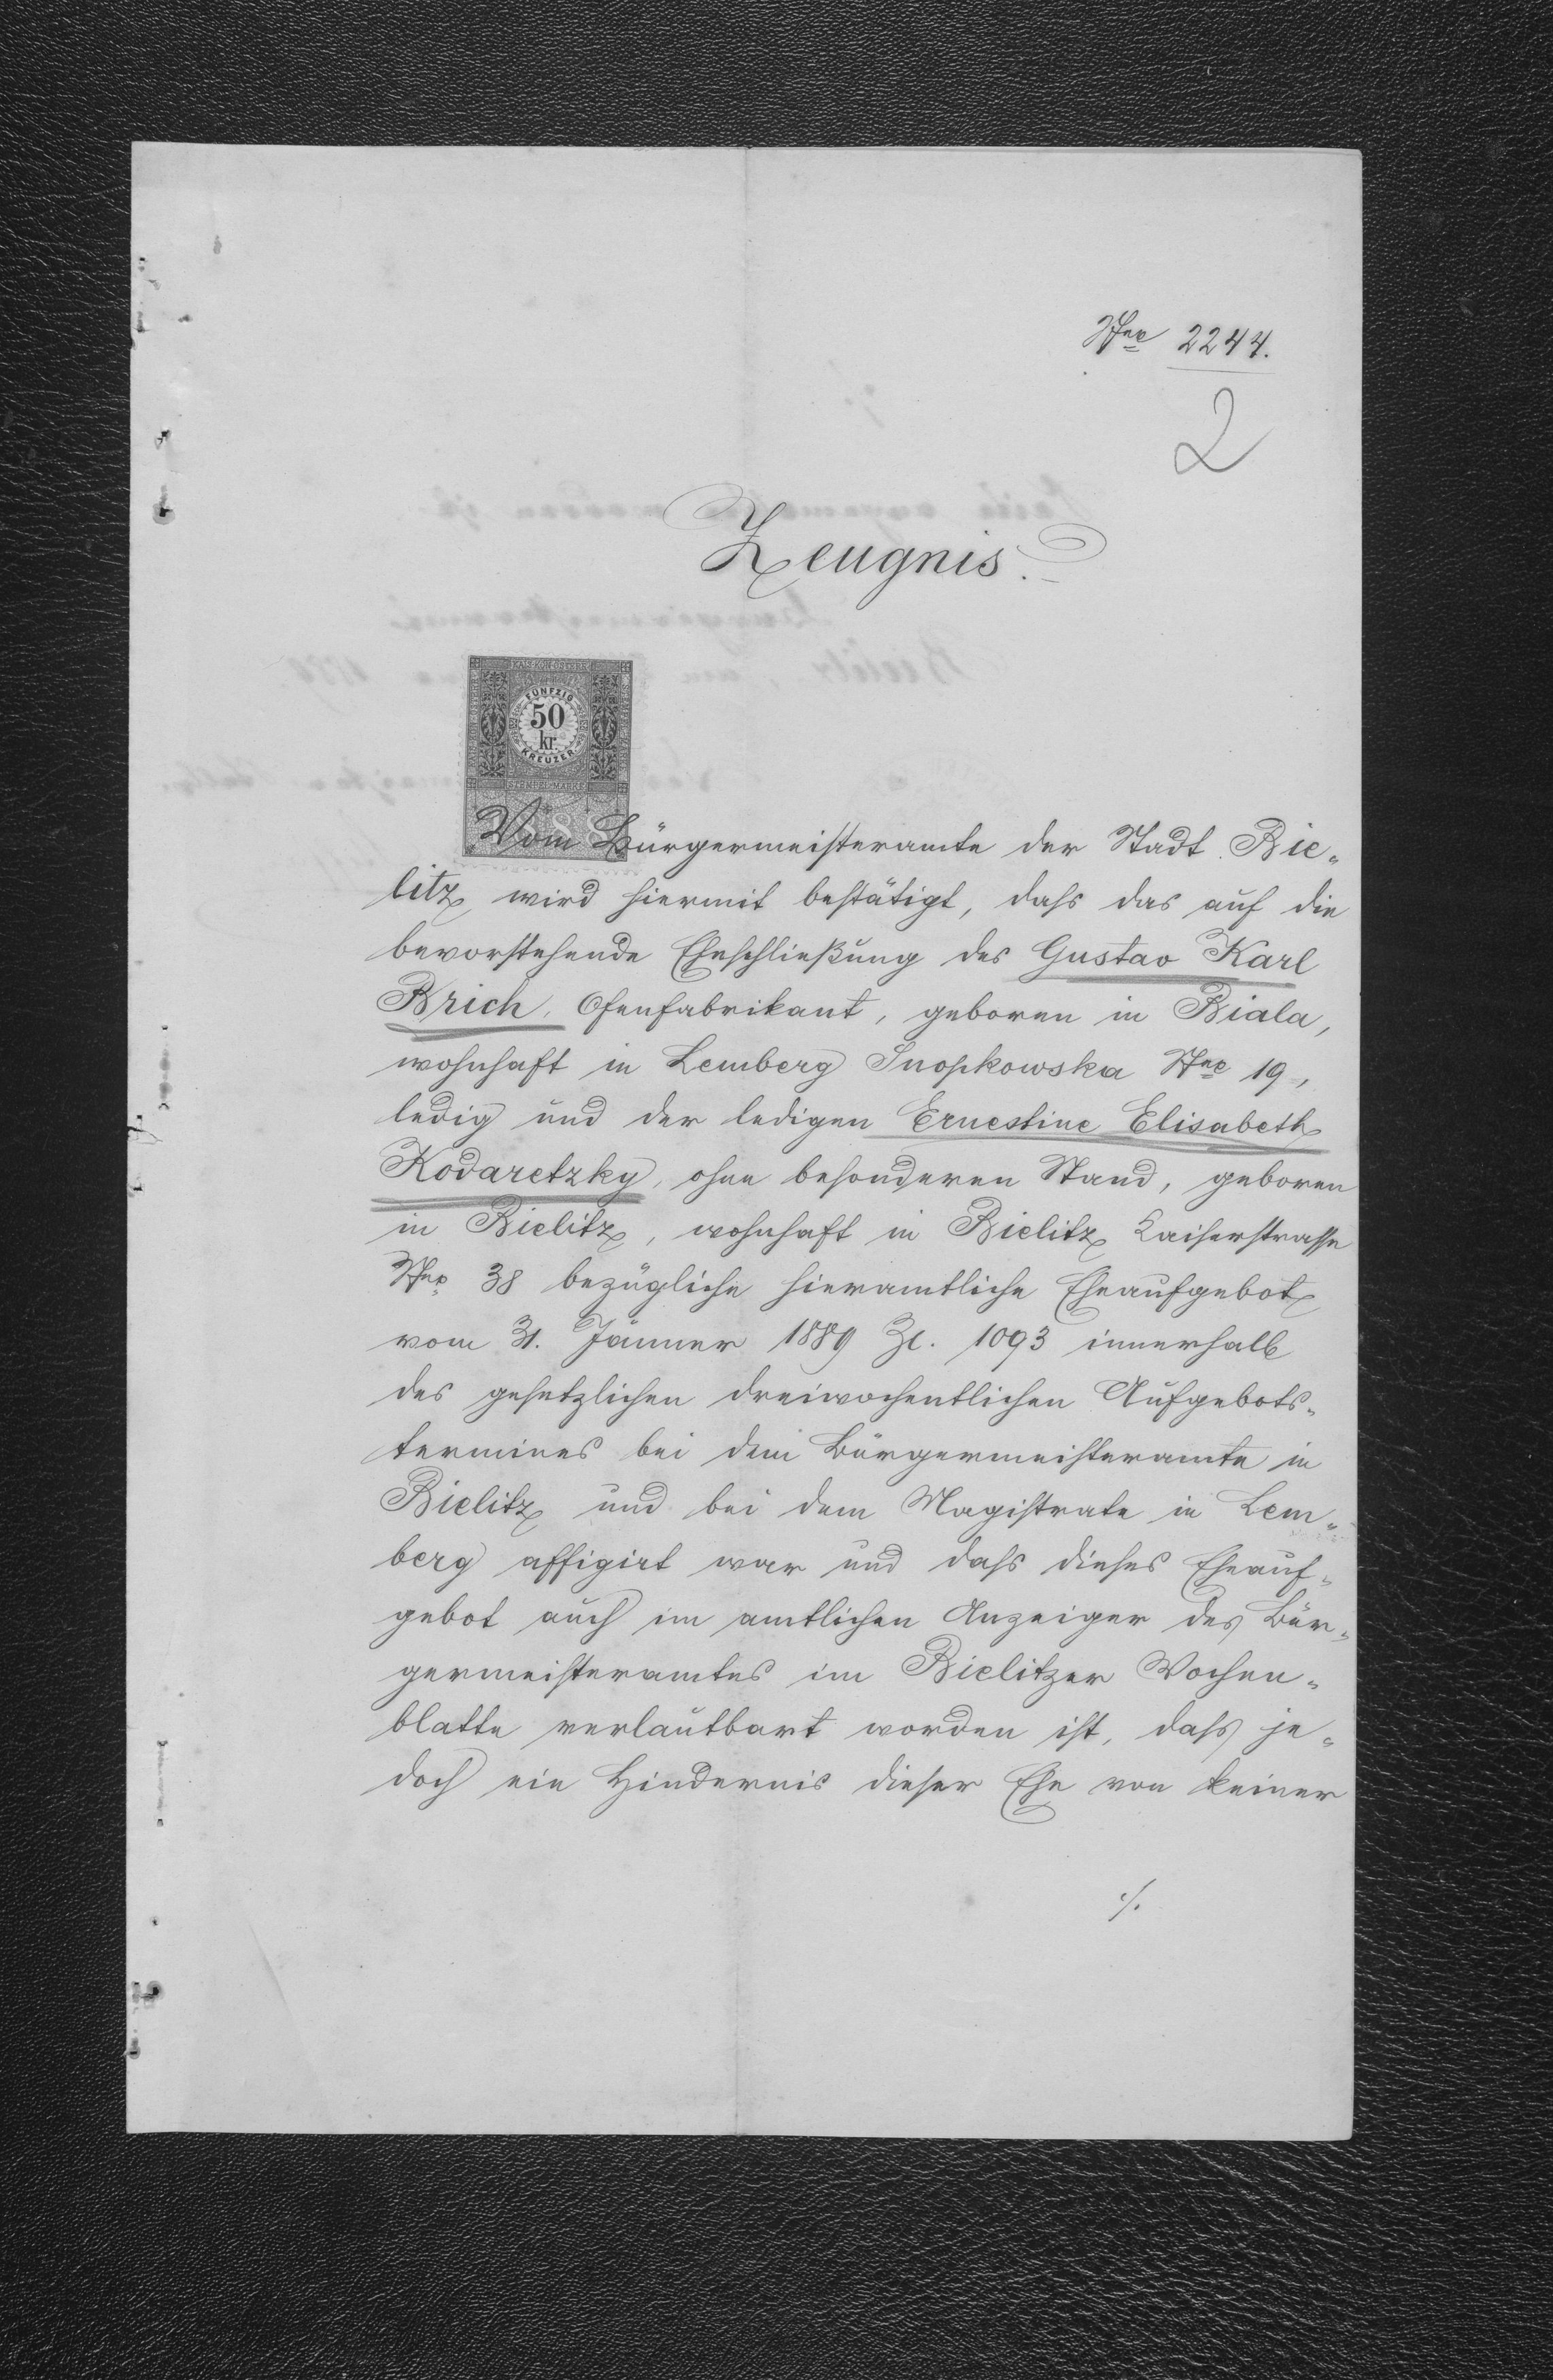 Nro 2244.
2
Zeugnis.
KAIS. KÖN. ÖSTERR.
FÜNFZIG
50
kr.
KREUZER
STEMPEL-MARKE
1888
Vom Bürgermeisteramte der Stadt Bie-
litz wird hiermit bestätigt, dass das auf die
bevorstehende Eheschließung des Gustav Karl
Brich, Ofenfabrikant, geboren in Biala,
wohnhaft in Lemberg Snopkowska Nro 19,
ledig und der ledigen Ernestine Elisabeth
Kodaretzky, ohne besonderen Stand, geboren
in Bielitz, wohnhaft in Bielitz Kaiserstrasse
Nro 38 bezügliche hieramtliche Eheaufgebot
vom 31. Jänner 1889 Zl. 1093 innerhalb
des gesetzlichen dreiwochentlichen Aufgebots-
termines bei dem Bürgermeisteramte in
Bielitz und bei dem Magistrate in Lem-
berg affigirt war und dass dieses Eheauf-
gebot auch im amtlichen Anzeiger des Bür-
germeisteramtes im Bielitzer Wochen-
blatte verlautbart worden ist, dass je-
doch ein Hindernis dieser Ehe von keiner
./.